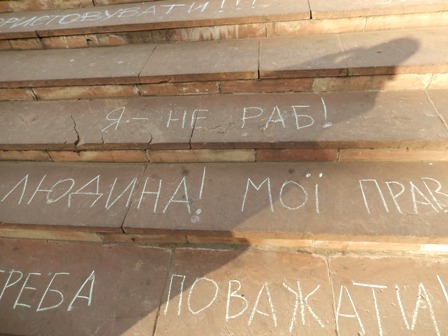 РИСТОВУВАТИ!!!
Я - НЕ РАБ!
ЛЮДИНА! МОЇ ПРАВ
РЕБА ПОВАЖАТИ!